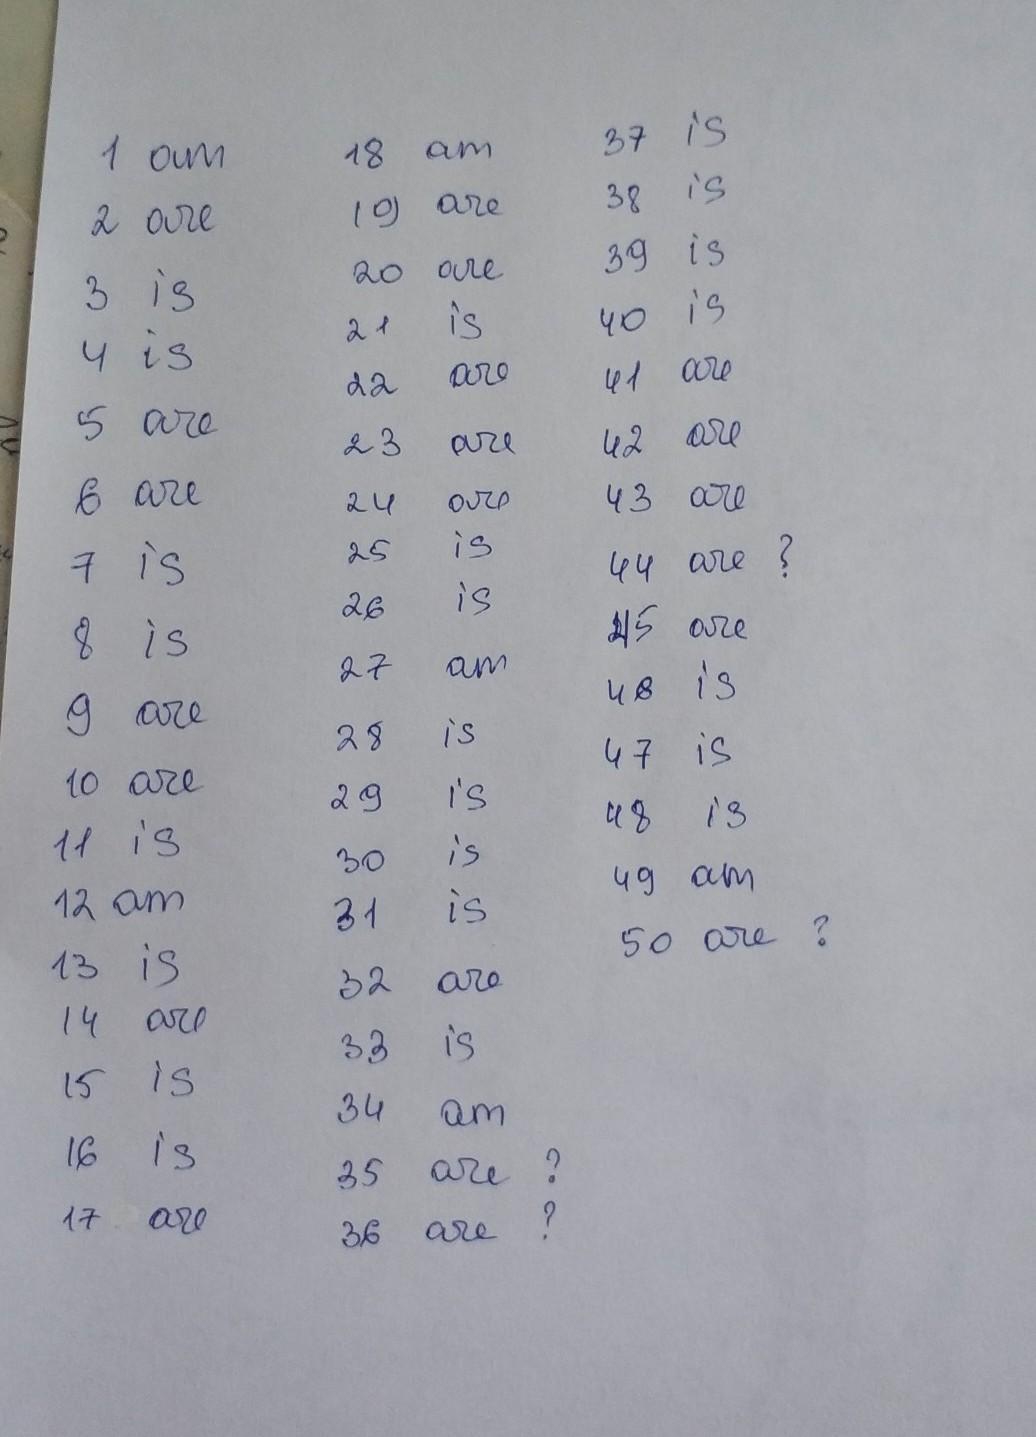 1 am
2 are
3 is
4 is
5 are
6 are
7 is
8 is
9 are
10 are
11 is
12 am
13 is
14 are
15 is
16 is
17 are
18 am
19 are
20 are
21 is
22 are
23 are
24 are
25 is
26 is
27 am
28 is
29 is
30 is
31 is
32 are
33 is
34 am
35 are ?
36 are ?
37 is
38 is
39 is
40 is
41 are
42 are
43 are
44 are ?
45 are
46 is
47 is
48 is
49 am
50 are ?